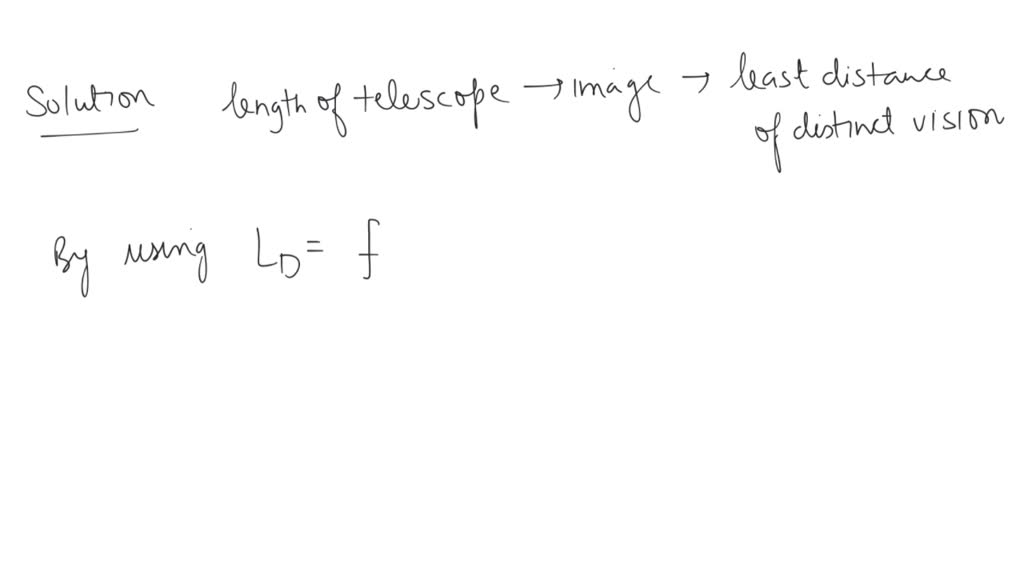 Solution length of telescope → image → least distance
of distinct vision
By using L_D = f